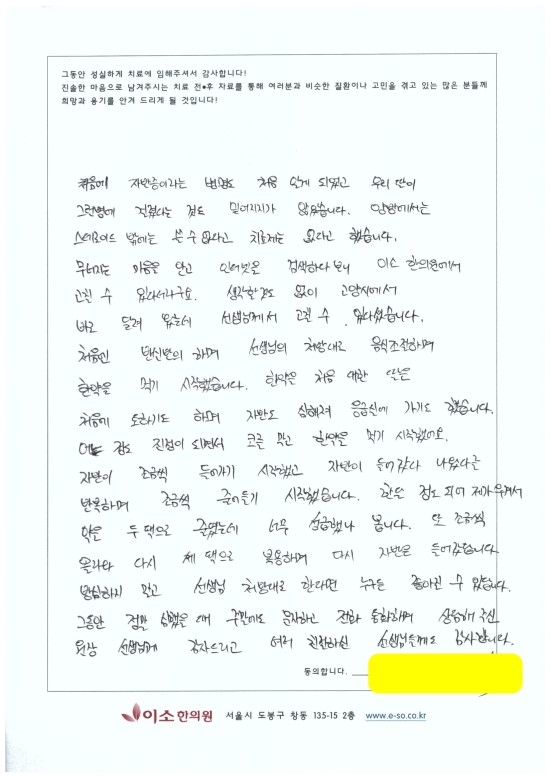 그동안 성실하게 치료에 임해주셔서 감사합니다!
진솔한 마음으로 남겨주시는 치료 전•후 자료를 통해 여러분과 비슷한 질환이나 고민을 겪고 있는 많은 분들께
희망과 용기를 안겨 드리게 될 것입니다!
처음에 자반증이라는 병명도 처음 알게 되었고 우리 딸이
그런병에 걸렸다는 것도 믿어지지가 않았습니다. 양방에서는
스테로이드 밖에는 쓸 수 없다고 치료제는 없다고 했습니다.
무너지는 마음을 안고 인터넷을 검색하다 보니 이소 한의원에서
고칠 수 있다하더라구요. 생각할 것도 없이 고양시에서
바로 달려 왔는데 선생님께서 고칠 수 있다셨습니다.
처음엔 반신반의 하며 선생님의 처방대로 음식조절하며
한약을 먹기 시작했습니다. 한약은 처음 먹는
처음에 토하기도 하며 자반도 심해져 응급실에 가기도 했습니다.
어느 정도 진정이 되면서 코를 막고 한약을 먹기 시작했어요.
자반이 조금씩 들어가기 시작했고 자반이 들어갔다 나왔다를
반복하며 조금씩 줄어들기 시작했습니다. 한달 정도 되어
약은 두 팩으로 줄였는데 너무 성급했나 봅니다. 또 조금씩
올라와 다시 세 팩으로 복용하며 다시 자반은 들어갔습니다.
방심하지 말고 선생님 처방대로 한다면 누구든 좋아질 수 있습니다.
그동안 정말 힘들었을 때 주말에도 문자하고 전화 통화하며 상담해 주신
원장 선생님께 감사드리고 여러 친절하신 선생님들께도 감사합니다.
동의합니다.
이소한의원 서울시 도봉구 창동 135-15 2층 www.e-so.co.kr